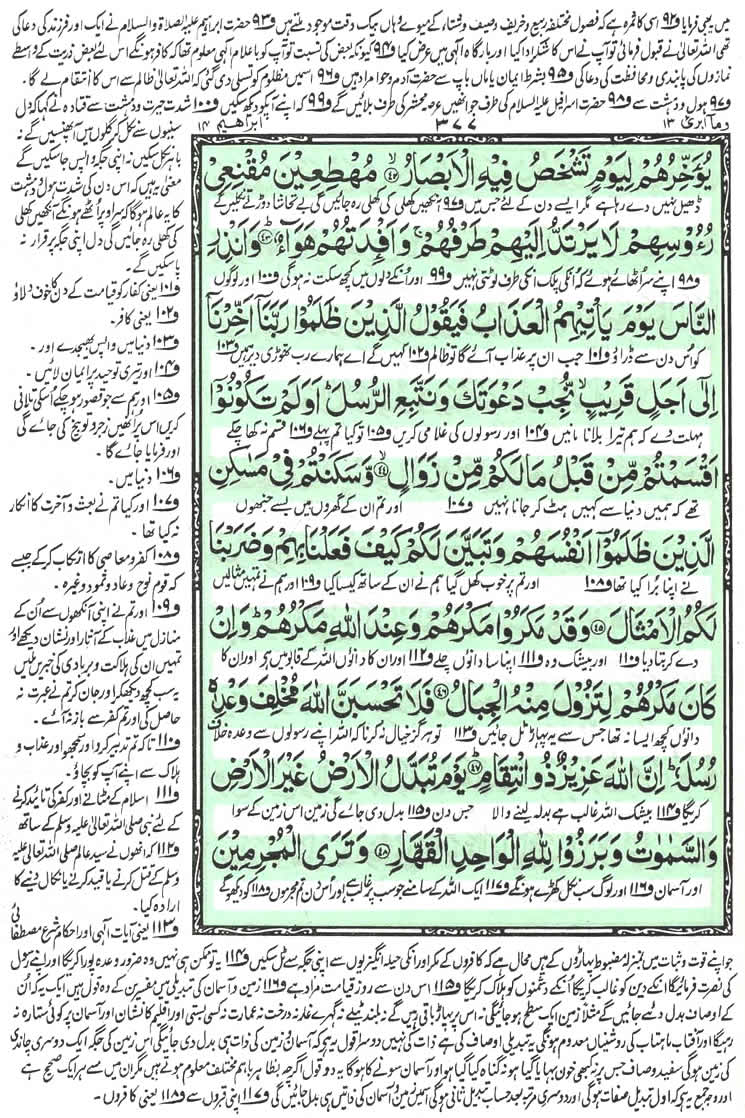 میں بھی فرمایا و۹۲ اسی کا ثمرہ ہے کہ فصول مختلفہ ربیع و خریف و صیف و شتاء کے میوے وہاں بیک وقت موجود ملتے ہیں و۹۳ حضرت ابراہیم علیہ الصلاۃ والسلام نے ایک اور فرزند کی دعا کی
تھی اللہ تعالیٰ نے قبول فرمائی تو آپ نے اس کا شکر ادا کیا اور بارگاہ الٰہی میں عرض کیا و۹۴ کیونکہ بعض کی نسبت تو آپ کو باعلام الٰہی معلوم تھا کہ کافر ہونگے اس لئے بعض ذریت کے واسطے
نمازوں کی پابندی و محافظت کی دعا کی و۹۵ بشرط ایمان یا ماں باپ سے حضرت آدم و حوا مراد ہیں و۹۶ اس میں مظلوم کو تسلی دی گئی کہ اللہ تعالیٰ ظالم سے اس کا انتقام لے گا۔
و۹۷ ہول و دہشت سے و۹۸ حضرت اسرافیل علیہ السلام کی طرف جو انھیں عرصہ محشر کی طرف بلائیں گے و۹۹ کہ اپنے آپ کو دیکھ سکیں و۱۰۰ شدت حیرت و دہشت سے قتادہ نے کہا کہ دل
وما ابرئ ۱۳ ۳۷۷ ابراهيم ۱۴
يُؤَخِّرُهُمْ لِيَوْمٍ تَشْخَصُ فِيهِ الْأَبْصَارُ ۴۲ مُهْطِعِينَ مُقْنِعِي
ڈھیل نہیں دے رہا ہے مگر ایسے دن کے لئے جس میں و۹۷ آنکھیں کھلی کی کھلی رہ جائیں گی بے تحاشا دوڑتے نکلیں گے
رُءُوسِهِمْ لَا يَرْتَدُّ إِلَيْهِمْ طَرْفُهُمْ وَأَفْئِدَتُهُمْ هَوَاءٌ ۴۳ وَأَنْذِرِ
و۹۸ اپنے سر اٹھائے ہوئے کہ انکی پلک انکی طرف لوٹتی نہیں و۹۹ اور انکے دلوں میں کچھ سکت نہ ہوگی و۱۰۰ اور لوگوں
النَّاسَ يَوْمَ يَأْتِيهِمُ الْعَذَابُ فَيَقُولُ الَّذِينَ ظَلَمُوا رَبَّنَا أَخِّرْنَا
کو اس دن سے ڈراؤ و۱۰۱ جب ان پر عذاب آئے گا تو ظالم و۱۰۲ کہیں گے اے ہمارے رب تھوڑی دیر ہمیں و۱۰۳
إِلَى أَجَلٍ قَرِيبٍ نُجِبْ دَعْوَتَكَ وَنَتَّبِعِ الرُّسُلَ أَوَلَمْ تَكُونُوا
مہلت دے کہ ہم تیرا بلانا مانیں و۱۰۴ اور رسولوں کی غلامی کریں و۱۰۵ تو کیا تم پہلے و۱۰۶ قسم نہ کھا چکے
أَقْسَمْتُمْ مِنْ قَبْلُ مَا لَكُمْ مِنْ زَوَالٍ ۴۴ وَسَكَنْتُمْ فِي مَسَاكِنِ
تھے کہ ہمیں دنیا سے کہیں ہٹ کر جانا نہیں و۱۰۷ اور تم ان کے گھروں میں بسے جنھوں
الَّذِينَ ظَلَمُوا أَنْفُسَهُمْ وَتَبَيَّنَ لَكُمْ كَيْفَ فَعَلْنَا بِهِمْ وَضَرَبْنَا
نے اپنا برا کیا تھا و۱۰۸ اور تم پر خوب کھل گیا ہم نے ان کے ساتھ کیسا کیا و۱۰۹ اور ہم نے تمہیں مثالیں
لَكُمُ الْأَمْثَالَ ۴۵ وَقَدْ مَكَرُوا مَكْرَهُمْ وَعِنْدَ اللَّهِ مَكْرُهُمْ وَإِنْ
دے کر بتا دیا و۱۱۰ اور بیشک وہ و۱۱۱ اپنا سا داؤں چلے و۱۱۲ اور ان کا داؤں اللہ کے قابو میں ہے اور ان کا
كَانَ مَكْرُهُمْ لِتَزُولَ مِنْهُ الْجِبَالُ ۴۶ فَلَا تَحْسَبَنَّ اللَّهَ مُخْلِفَ وَعْدِهِ
داؤں کچھ ایسا نہ تھا جس سے یہ پہاڑ ٹل جائیں و۱۱۳ تو ہرگز خیال نہ کرنا کہ اللہ اپنے رسولوں سے وعدہ خلاف
رُسُلَهُ إِنَّ اللَّهَ عَزِيزٌ ذُو انْتِقَامٍ ۴۷ يَوْمَ تُبَدَّلُ الْأَرْضُ غَيْرَ الْأَرْضِ
کریگا و۱۱۴ بیشک اللہ غالب ہے بدلہ لینے والا جس دن و۱۱۵ بدل دی جائے گی زمین اس زمین کے سوا
وَالسَّمَاوَاتُ وَبَرَزُوا لِلَّهِ الْوَاحِدِ الْقَهَّارِ ۴۸ وَتَرَى الْمُجْرِمِينَ
اور آسمان و۱۱۶ اور لوگ سب نکل کھڑے ہونگے و۱۱۷ ایک اللہ کے سامنے جو سب پر غالب ہے اور اس دن تم مجرموں و۱۱۸ کو دیکھو گے
سینوں سے نکل کر گلوں میں آپھنسیں گے نہ
باہر نکل سکیں نہ اپنی جگہ واپس جا سکیں گے
معنی یہ ہیں کہ اس دن کی شدت ہول و دہشت
کا یہ عالم ہوگا کہ سر اوپر اٹھے ہونگے آنکھیں کھلی
کی کھلی رہ جائیں گی دل اپنی جگہ پر قرار نہ
پا سکیں گے۔
و۱۰۱ یعنی کفار کو قیامت کے دن کا خوف دلاؤ
و۱۰۲ یعنی کافر۔
و۱۰۳ دنیا میں واپس بھیجدے اور۔
و۱۰۴ اور تیری توحید پر ایمان لائیں۔
و۱۰۵ اور ہم سے جو قصور ہو چکے اسکی تلافی
کریں اس پر انھیں زجر و توبیخ کی جائے گی
اور فرمایا جائے گا۔
و۱۰۶ دنیا میں۔
و۱۰۷ اور کیا تم نے بعث و آخرت کا انکار
نہ کیا تھا۔
و۱۰۸ کفر و معاصی کا ارتکاب کر کے جیسے
کہ قوم نوح و عاد و ثمود وغیرہ۔
و۱۰۹ اور تم نے اپنی آنکھوں سے ان کے
منازل میں عذاب کے آثار اور نشان دیکھے اور
تمہیں ان کی ہلاکت و بربادی کی خبریں ملیں
یہ سب کچھ دیکھ کر اور جان کر تم نے عبرت نہ
حاصل کی اور تم کفر سے باز نہ آئے۔
و۱۱۰ تاکہ تم تدبیر کرو اور سمجھو اور عذاب و
ہلاک سے اپنے آپ کو بچاؤ۔
و۱۱۱ اسلام کے مٹانے اور کفر کی تائید کرنے
کے لئے نبی صلی اللہ تعالیٰ علیہ وسلم کے ساتھ
و۱۱۲ کہ انھوں نے سید عالم صلی اللہ تعالیٰ علیہ
وسلم کے قتل کرنے یا قید کرنے یا نکال دینے کا
ارادہ کیا۔
و۱۱۳ یعنی آیات الٰہی اور احکام شرع مصطفائی
جو اپنے قوت و ثبات میں بمنزلہ مضبوط پہاڑوں کے ہیں محال ہے کہ کافروں کے مکر اور انکی حیلہ انگیزیوں سے اپنی جگہ سے ٹل سکیں و۱۱۴ یہ تو ممکن ہی نہیں وہ ضرور وعدہ پورا کریگا اور اپنے رسول
کی نصرت فرمائیگا انکے دین کو غالب کریگا انکے دشمنوں کو ہلاک کریگا و۱۱۵ اس دن سے روز قیامت مراد ہے و۱۱۶ زمین و آسمان کی تبدیلی میں مفسرین کے دو قول ہیں ایک یہ کہ ان
کے اوصاف بدل دئے جائیں گے مثلاً زمین ایک سطح ہو جائیگی نہ اس پر پہاڑ باقی رہیں گے نہ بلند ٹیلے نہ گہرے غار نہ درخت نہ عمارت نہ کسی بستی اور اقلیم کا نشان اور آسمان پر کوئی ستارہ نہ
رہیگا اور آفتاب ماہتاب کی روشنیاں معدوم ہونگی یہ تبدیلی اوصاف کی ہے ذات کی نہیں دوسرا قول یہ ہے کہ آسمان و زمین کی ذات ہی بدل دی جائیگی اس زمین کی جگہ ایک دوسری چاندی
کی زمین ہوگی سفید و صاف جس پر نہ کبھی خون بہایا گیا ہو نہ گناہ کیا گیا ہو اور آسمان سونے کا ہوگا یہ دو قول اگرچہ بظاہر باہم مختلف معلوم ہوتے ہیں مگر ان میں سے ہر ایک صحیح ہے
اور وجہ جمع یہ ہے کہ اول تبدیل صفات ہوگی اور دوسری مرتبہ بعد حساب تبدیل ثانی ہوگی اس میں زمین و آسمان کی ذاتیں ہی بدل جائیں گی و۱۱۷ اپنی قبروں سے و۱۱۸ یعنی کافروں۔